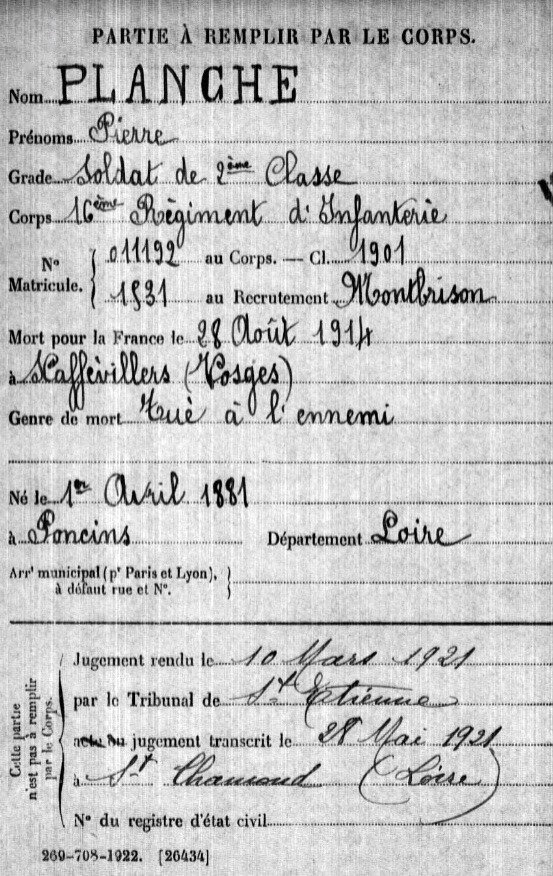 PARTIE À REMPLIR PAR LE CORPS.
Nom PLANCHE
Prénoms Pierre
Grade Soldat de 2ème Classe
Corps 16ème Régiment d'Infanterie
N° Matricule. { 011192 au Corps. — Cl. 1901
1531 au Recrutement Montbrison
Mort pour la France le 28 Août 1914
à Xaffévillers (Vosges)
Genre de mort Tué à l'ennemi
Né le 1er Avril 1881
à Poncins Département Loire
Arrt municipal (pr Paris et Lyon), }
à défaut rue et N°.
Cette partie n'est pas à remplir par le Corps.
Jugement rendu le 10 Mars 1921
par le Tribunal de St Etienne
acte ou jugement transcrit le 28 Mai 1921
à St Chamond (Loire)
N° du registre d'état civil
269-708-1922. [26434]